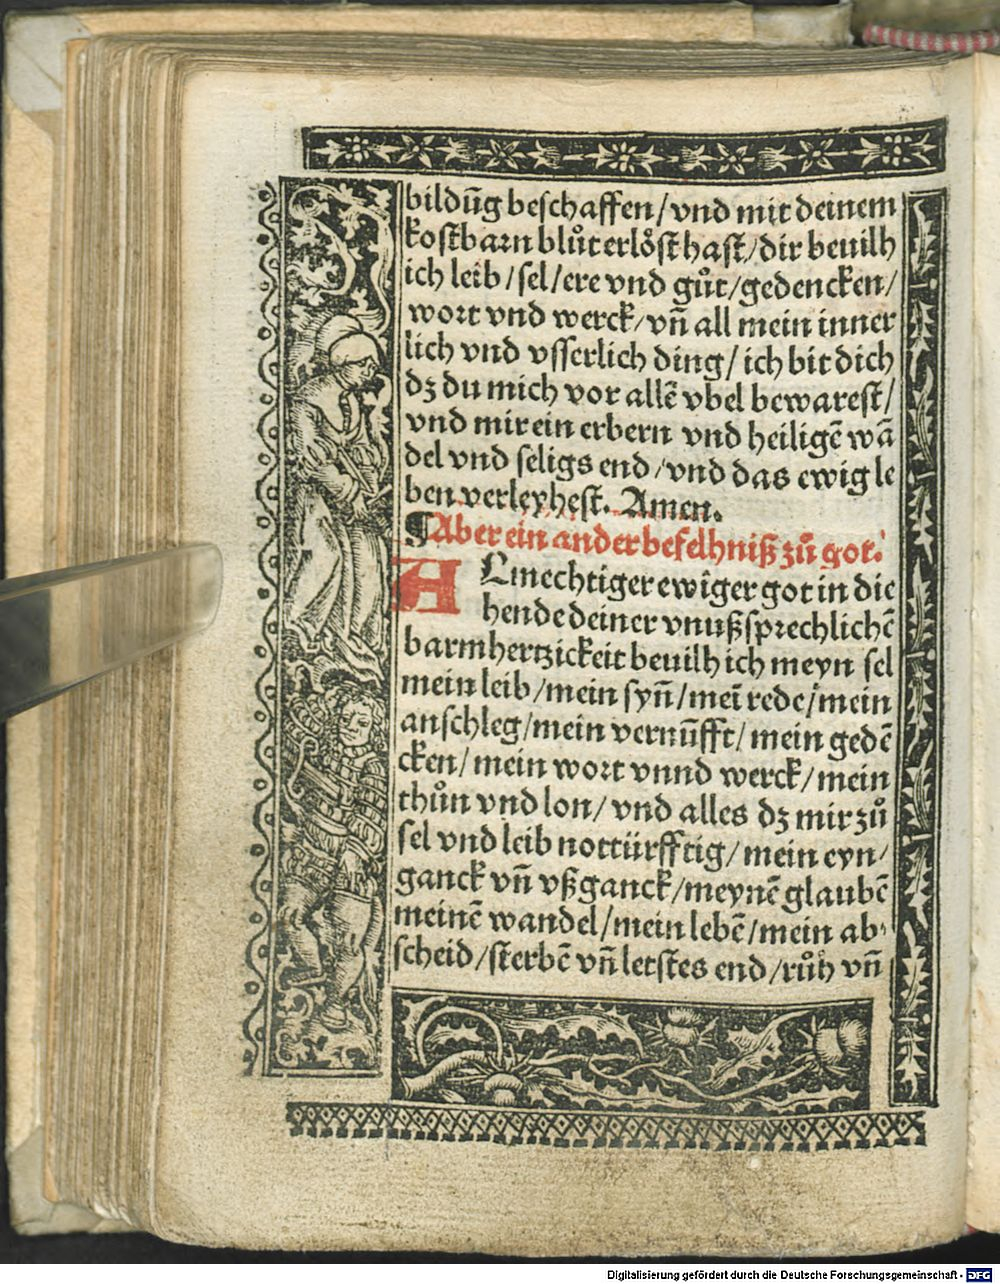 bildūg beschaffen/vnd mit deinem
kostbarn blůt erlöst hast/dir beuilh
ich leib/sel/ere vnd gůt/gedencken/
wort vnd werck/vn̄ all mein inner
lich vnd vsserlich ding/ich bit dich
dz du mich vor allē vbel bewarest/
vnd mir ein erbern vnd heiligē wā
del vnd seligs end/vnd das ewig le
ben verleyhest. Amen.
¶Aber ein ander befelhniß zů got.
ALmechtiger ewiger got in die
hende deiner vnußsprechlichē
barmhertzickeit beuilh ich meyn sel
mein leib/mein syn̄/mei͞ rede/mein
anschleg/mein vernūfft/mein gedē
cken/mein wort vnnd werck/mein
thůn vnd lon/vnd alles dz mir zů
sel vnd leib nottürfftig/mein eyn/
ganck vn̄ vßganck/meynē glaubē
meinē wandel/mein lebē/mein ab⸗
scheid/sterbē vn̄ letstes end/růh vn̄
Digitalisierung gefördert durch die Deutsche Forschungsgemeinschaft - DFG